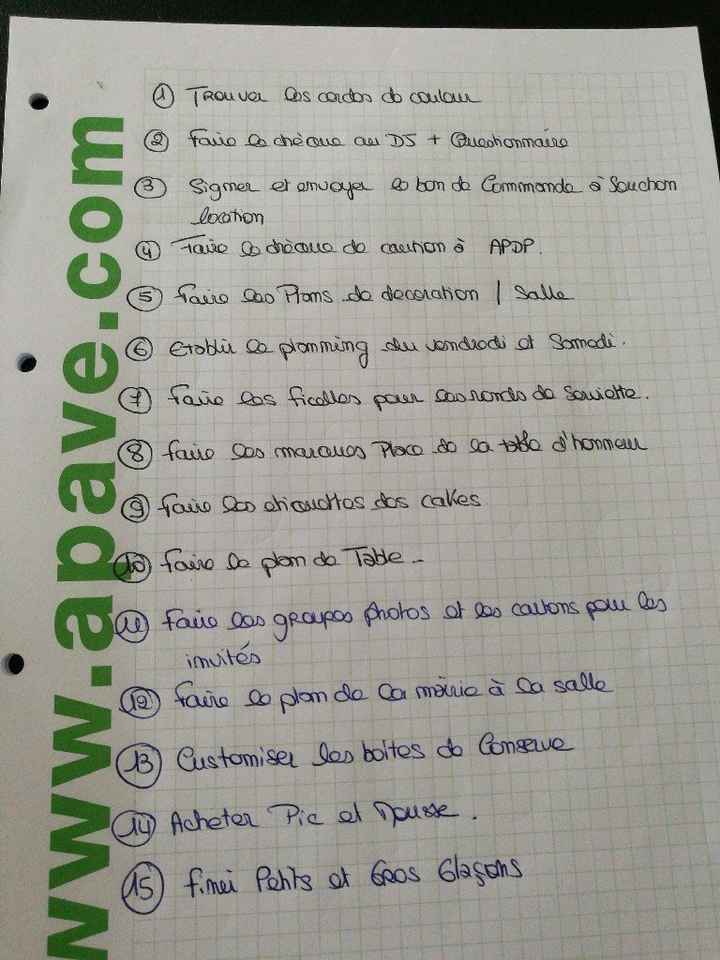 www.apave.com
① Trouver les cordes de couleur
② faire le chèque au DJ + Questionnaire
③ Signer et envoyer le bon de Commande à Souchon
location
④ Faire le chèque de caution à APDP.
⑤ faire les Plans de decoration / Salle
⑥ etablir le planning du vendredi et Samedi.
⑦ faire les ficelles pour les ronds de Serviette.
⑧ faire les marques Place de la table d'honneur
⑨ faire les etiquettes des cakes
⑩ faire le plan de Table -
⑪ faire les groupes photos et les cartons pour les
invités
⑫ faire le plan de la mairie à la salle
⑬ Customiser les boites de Conserve
⑭ Acheter Pic et Mousse.
⑮ finir Petits et Gros Glaçons